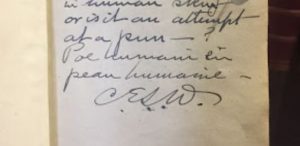 in human skin
or is it an attempt
at a pun — ?
Poe humani in
peau humaine —
C.E.S.W.